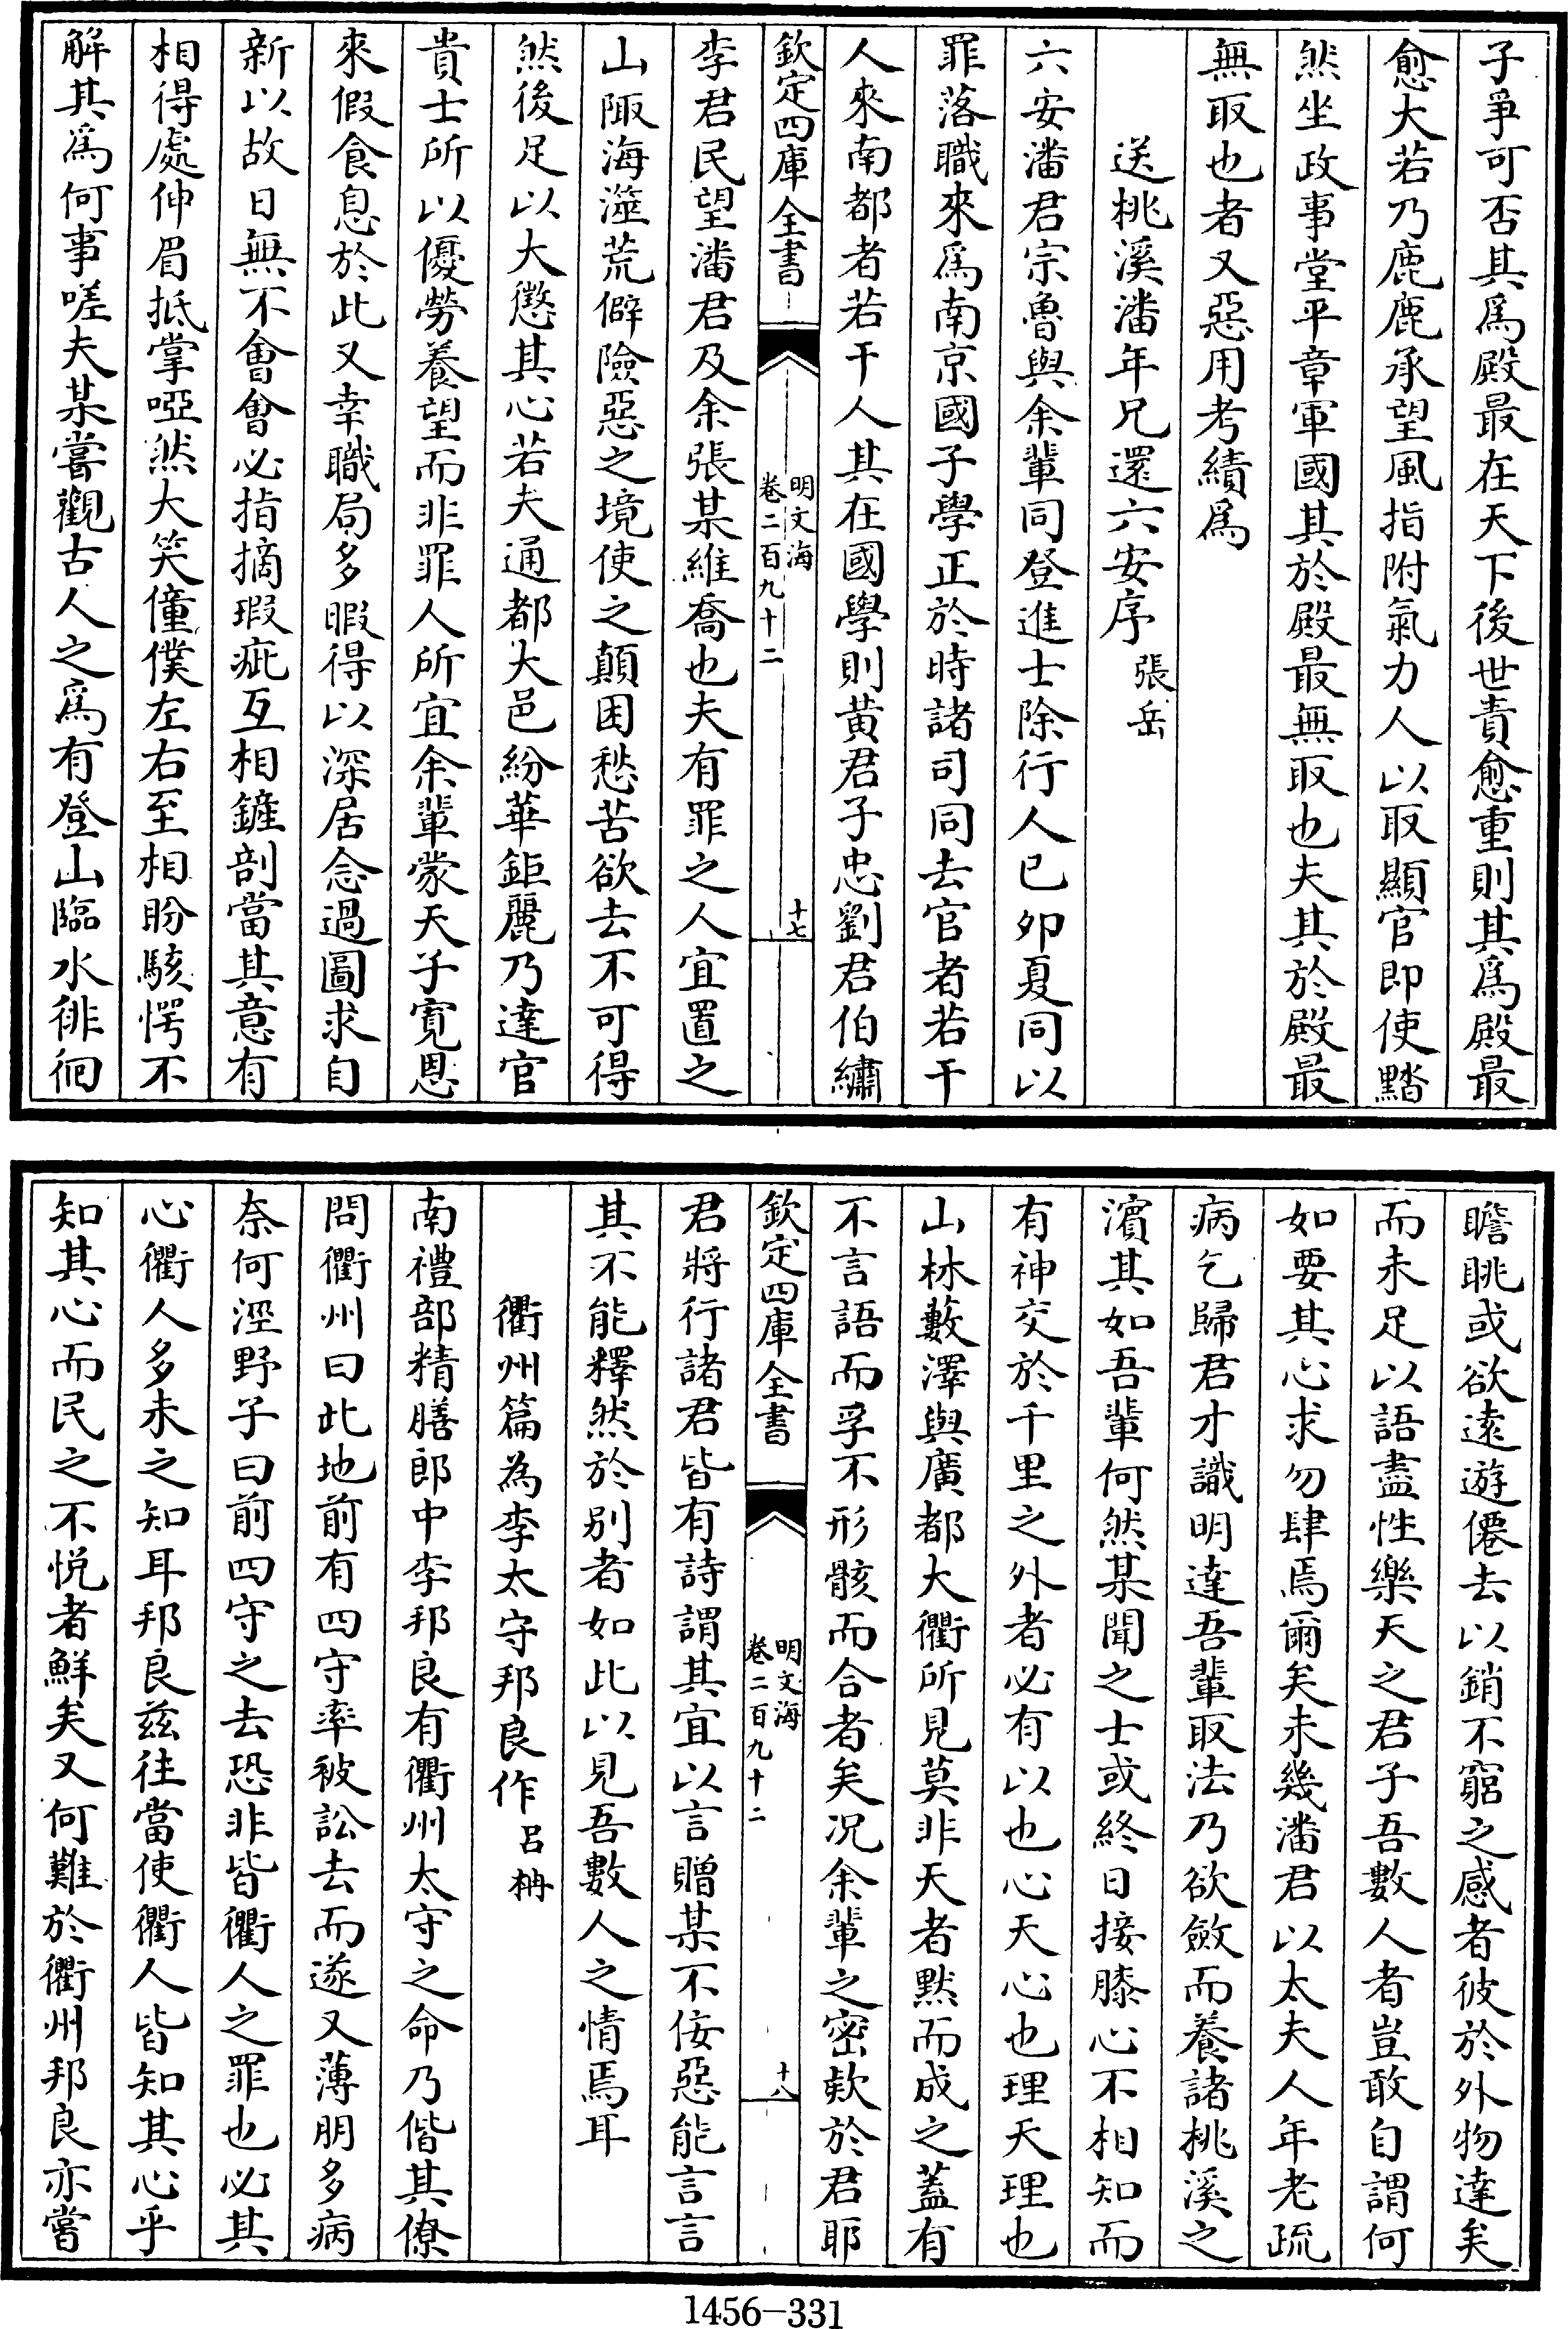 子爭可否其爲殿最在天下後世責愈重則其爲殿最
愈大若乃鹿鹿承望風指附氣力人以取顯官即使黯
然坐政事堂平章軍國其於殿最無取也夫其於殿最
無取也者又惡用考績爲
送桃溪潘年兄還六安序 張岳
六安潘君宗魯與余輩同登進士除行人已卯夏同以
罪落職來爲南京國子學正於時諸司同去官者若干
人來南都者若干人其在國學則黄君子忠劉君伯繡
欽定四庫全書
明文海
卷二百九十二
十七
李君民望潘君及余張某維喬也夫有罪之人宜置之
山陬海澨荒僻險惡之境使之顛困愁苦欲去不可得
然後足以大懲其心若夫通都大邑紛華鉅麗乃達官
貴士所以優勞養望而非罪人所宜余輩蒙天子寛恩
來假食息於此又幸職局多暇得以深居念過圖求自
新以故日無不會會必指摘瑕疵互相鏟剖當其意有
相得處伸眉抵掌啞然大笑僮僕左右至相盼駭愕不
解其爲何事嗟夫某嘗觀古人之爲有登山臨水徘徊
瞻眺或欲遠遊僊去以銷不窮之感者彼於外物達矣
而未足以語盡性樂天之君子吾數人者豈敢自謂何
如要其心求勿肆焉爾矣未幾潘君以太夫人年老疏
病乞歸君才識明達吾輩取法乃欲斂而養諸桃溪之
濵其如吾輩何然某聞之士或終日接膝心不相知而
有神交於千里之外者必有以也心天心也理天理也
山林藪澤與廣都大衢所見莫非天者黙而成之蓋有
不言語而孚不形骸而合者矣况余輩之密欵於君耶
欽定四庫全書
明文海
卷二百九十二
十八
君將行諸君皆有詩謂其宜以言贈某不佞惡能言言
其不能釋然於别者如此以見吾數人之情焉耳
衢州篇為李太守邦良作 吕柟
南禮部精膳郎中李邦良有衢州太守之命乃偕其僚
問衢州曰此地前有四守率被訟去而遂又薄朋多病
奈何涇野子曰前四守之去恐非皆衢人之罪也必其
心衢人多未之知耳邦良兹往當使衢人皆知其心乎
知其心而民之不悦者鮮矣又何難於衢州邦良亦嘗
1456-331